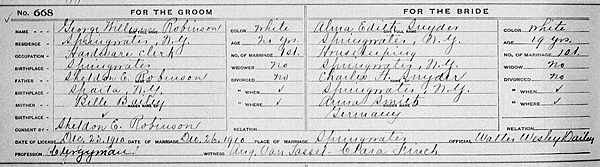 No. 668 FOR THE GROOM FOR THE BRIDE
NAME George Willis Robinson COLOR White Alma Edith Snyder COLOR White
RESIDENCE Springwater, N.Y. AGE 20 yrs. Springwater, N.Y. AGE 19 yrs.
OCCUPATION Hardware Clerk NO. OF MARRIAGE 1st. Housekeeping NO. OF MARRIAGE 1st.
BIRTHPLACE Springwater WIDOWER No Springwater, N.Y. WIDOW No
FATHER Sheldon E. Robinson DIVORCED No Charles H. Snyder DIVORCED No
BIRTHPLACE Sparta, N.Y. " WHEN ✓ Springwater, N.Y. " WHEN ✓
MOTHER Belle Bailey " WHERE ✓ Anna Smith " WHERE ✓
BIRTHPLACE Germany
CONSENT BY Sheldon E. Robinson
DATE OF LICENSE Dec. 23, 1910 DATE OF MARRIAGE Dec. 26, 1910 PLACE OF MARRIAGE Springwater OFFICIAL Walter Wesley Dailey
PROFESSION Clergyman WITNESS Van Tassel Clara Finch